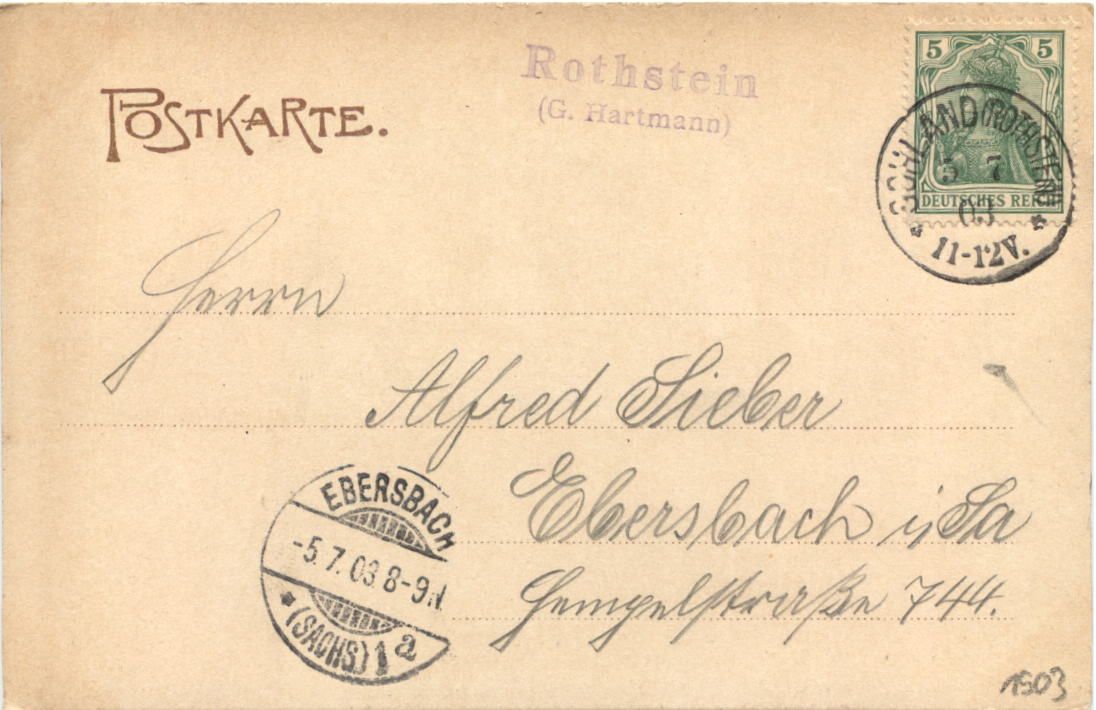 POSTKARTE.
Rothstein
(G. Hartmann)
5 5
DEUTSCHES REICH
SOHLAND (ROTHSTEIN)
5 7
03
11-12V.
Herrn
Alfred Sieber
Ebersbach i/Sa
Hempelstraße 744.
EBERSBACH
-5.7.03.8-9N.
* (SACHS.) 1a
1903